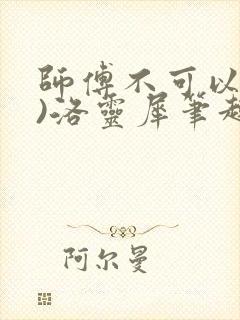 師傅不可以
)洛靈犀筆趣
阿尔曼